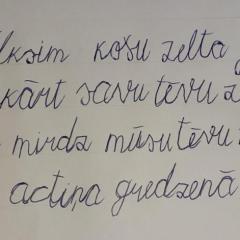 košu zelta
kārt savu tēvu
mirdz mūsu tēvu
actiņa gredzenā